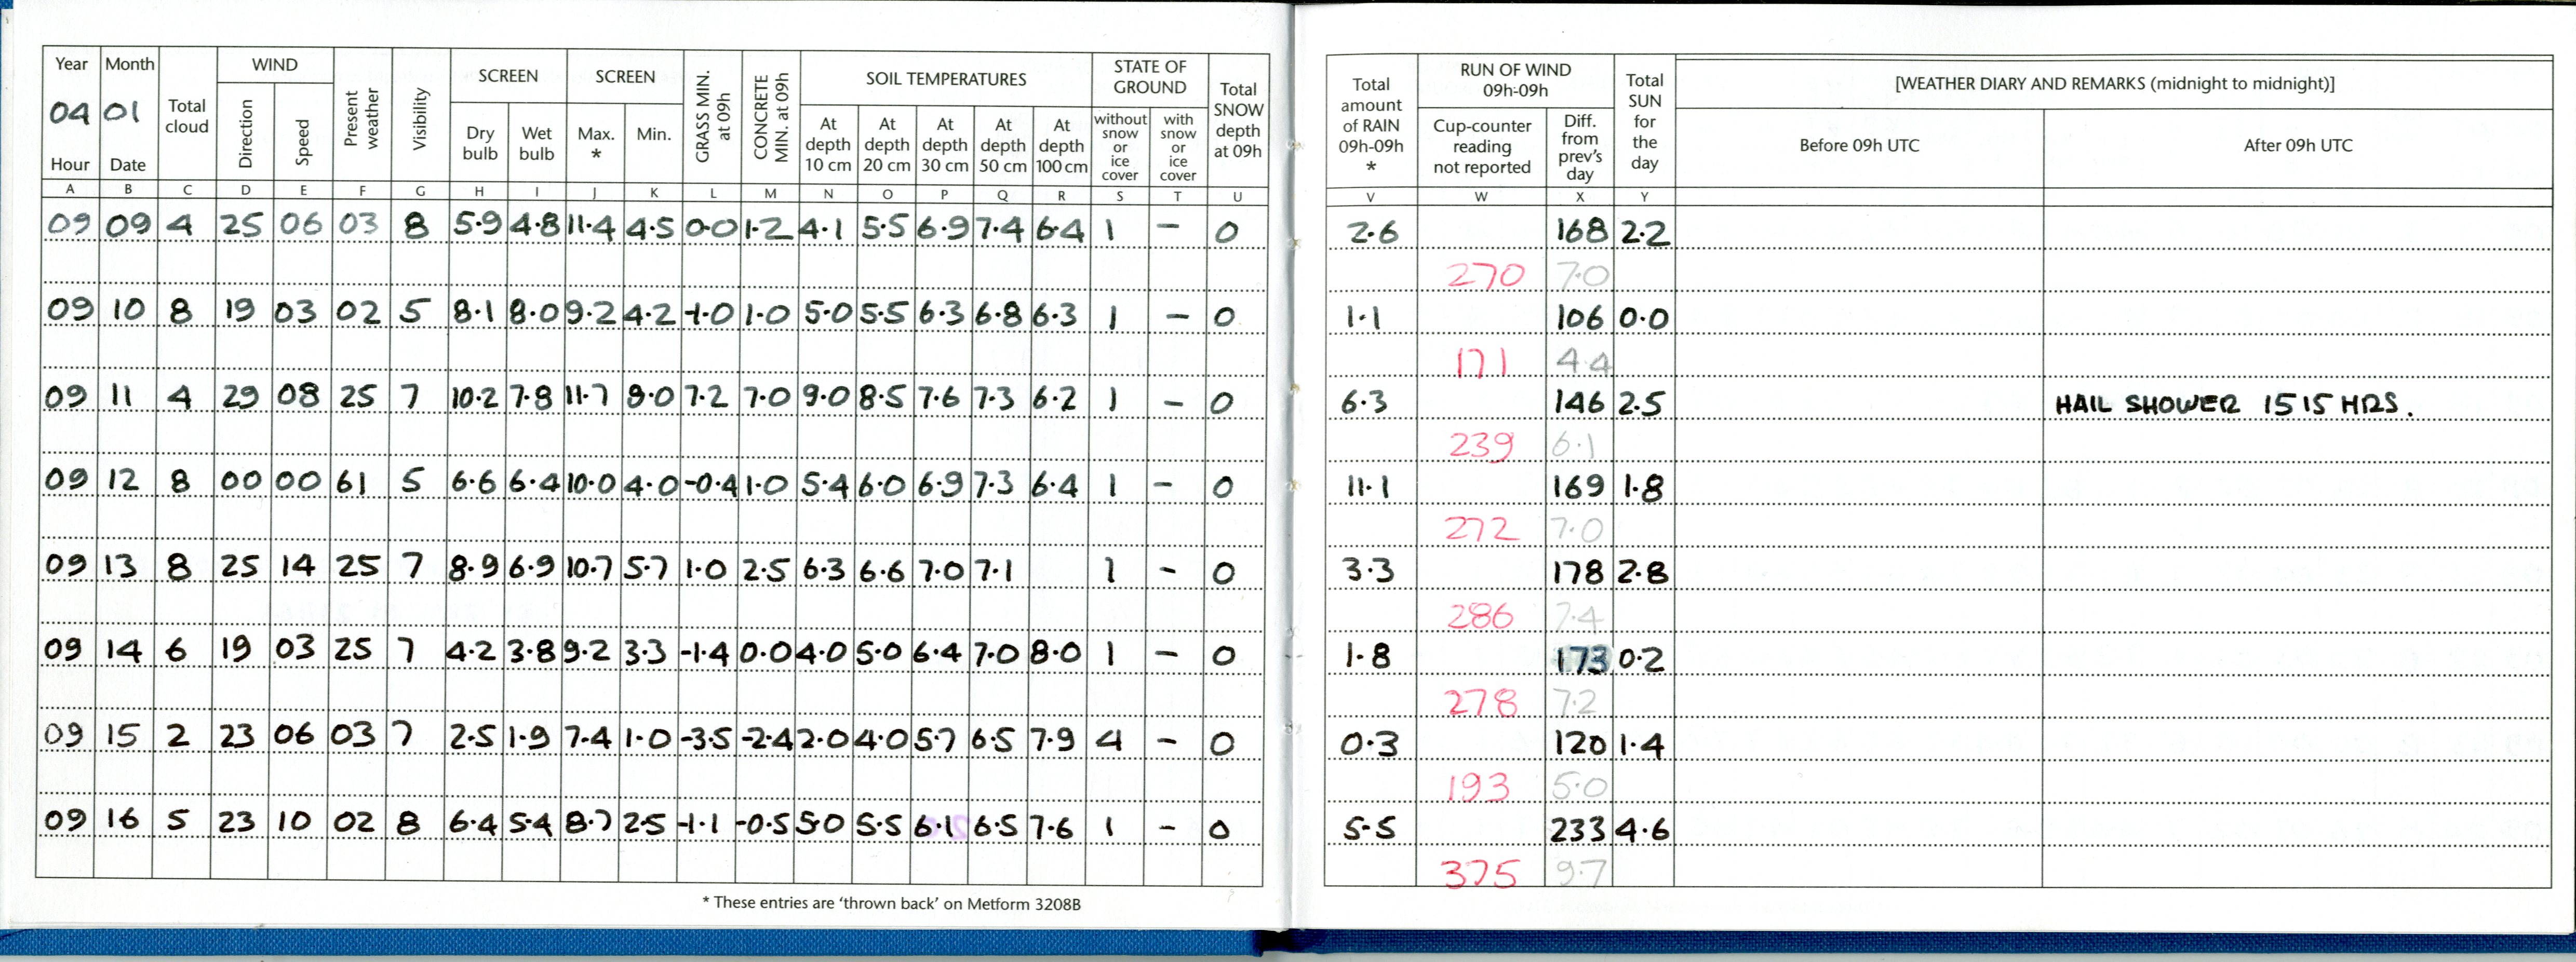 Year Month Total cloud WIND Direction Speed Present weather Visibility SCREEN Dry bulb Wet bulb SCREEN Max. * Min. GRASS MIN. at 09h CONCRETE MIN. at 09h SOIL TEMPERATURES At depth 10 cm At depth 20 cm At depth 30 cm At depth 50 cm At depth 100 cm STATE OF GROUND without snow or ice cover with snow or ice cover Total SNOW depth at 09h
04 01
Hour Date
A B C D E F G H I J K L M N O P Q R S T U
09 09 4 25 06 03 8 5.9 4.8 11.4 4.5 0.0 1.2 4.1 5.5 6.9 7.4 6.4 1 – 0
09 10 8 19 03 02 5 8.1 8.0 9.2 4.2 -1.0 1.0 5.0 5.5 6.3 6.8 6.3 1 – 0
09 11 4 29 08 25 7 10.2 7.8 11.7 8.0 7.2 7.0 9.0 8.5 7.6 7.3 6.2 1 – 0
09 12 8 00 00 61 5 6.6 6.4 10.0 4.0 -0.4 1.0 5.4 6.0 6.9 7.3 6.4 1 – 0
09 13 8 25 14 25 7 8.9 6.9 10.7 5.7 1.0 2.5 6.3 6.6 7.0 7.1 1 – 0
09 14 6 19 03 25 7 4.2 3.8 9.2 3.3 -1.4 0.0 4.0 5.0 6.4 7.0 8.0 1 – 0
09 15 2 23 06 03 7 2.5 1.9 7.4 1.0 -3.5 -2.4 2.0 4.0 5.7 6.5 7.9 4 – 0
09 16 5 23 10 02 8 6.4 5.4 8.7 2.5 -1.1 -0.5 5.0 5.5 6.1 6.5 7.6 1 – 0
* These entries are 'thrown back' on Metform 3208B
Total amount of RAIN 09h-09h * RUN OF WIND 09h-09h Cup-counter reading not reported Diff. from prev's day Total SUN for the day [WEATHER DIARY AND REMARKS (midnight to midnight)]
Before 09h UTC After 09h UTC
V W X Y
2.6 168 2.2
270 7.0
1.1 106 0.0
171 4.4
6.3 146 2.5 HAIL SHOWER 1515 HRS.
239 6.1
11.1 169 1.8
272 7.0
3.3 178 2.8
286 7.4
1.8 173 0.2
278 7.2
0.3 120 1.4
193 5.0
5.5 233 4.6
375 9.7